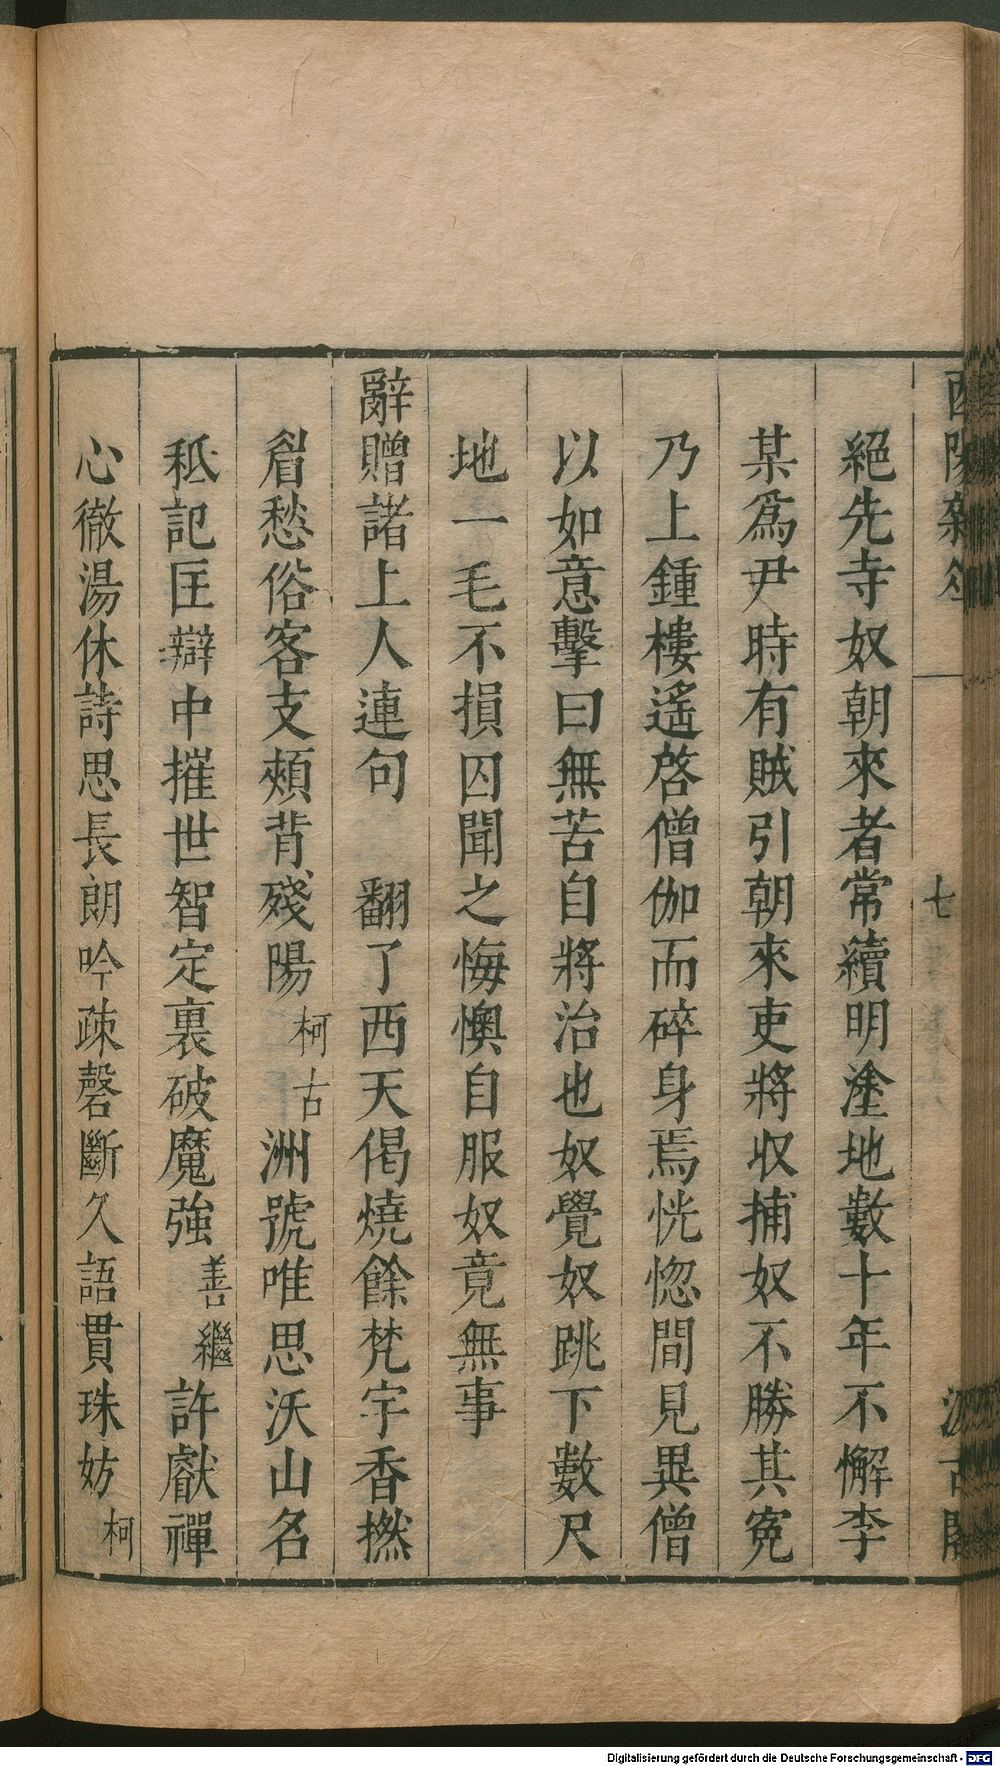 酉陽雜俎 七 汲古閣
絕先寺奴朝來者常續明塗地數十年不懈李
某爲尹時有賊引朝來吏將收捕奴不勝其寃
乃上鍾樓遙啓僧伽而碎身焉恍惚間見異僧
以如意擊曰無苦自將治也奴覺奴跳下數尺
地一毛不損囚聞之悔懊自服奴竟無事
辭贈諸上人連句　翻了西天偈燒餘梵字香撚
眉愁俗客支頰背殘陽柯古洲號唯思沃山名
秖記匡辯中摧世智定裏破魔強善繼許獻禪
心徹湯休詩思長朗吟疎磬斷久語貫珠妨柯
Digitalisierung gefördert durch die Deutsche Forschungsgemeinschaft - DFG